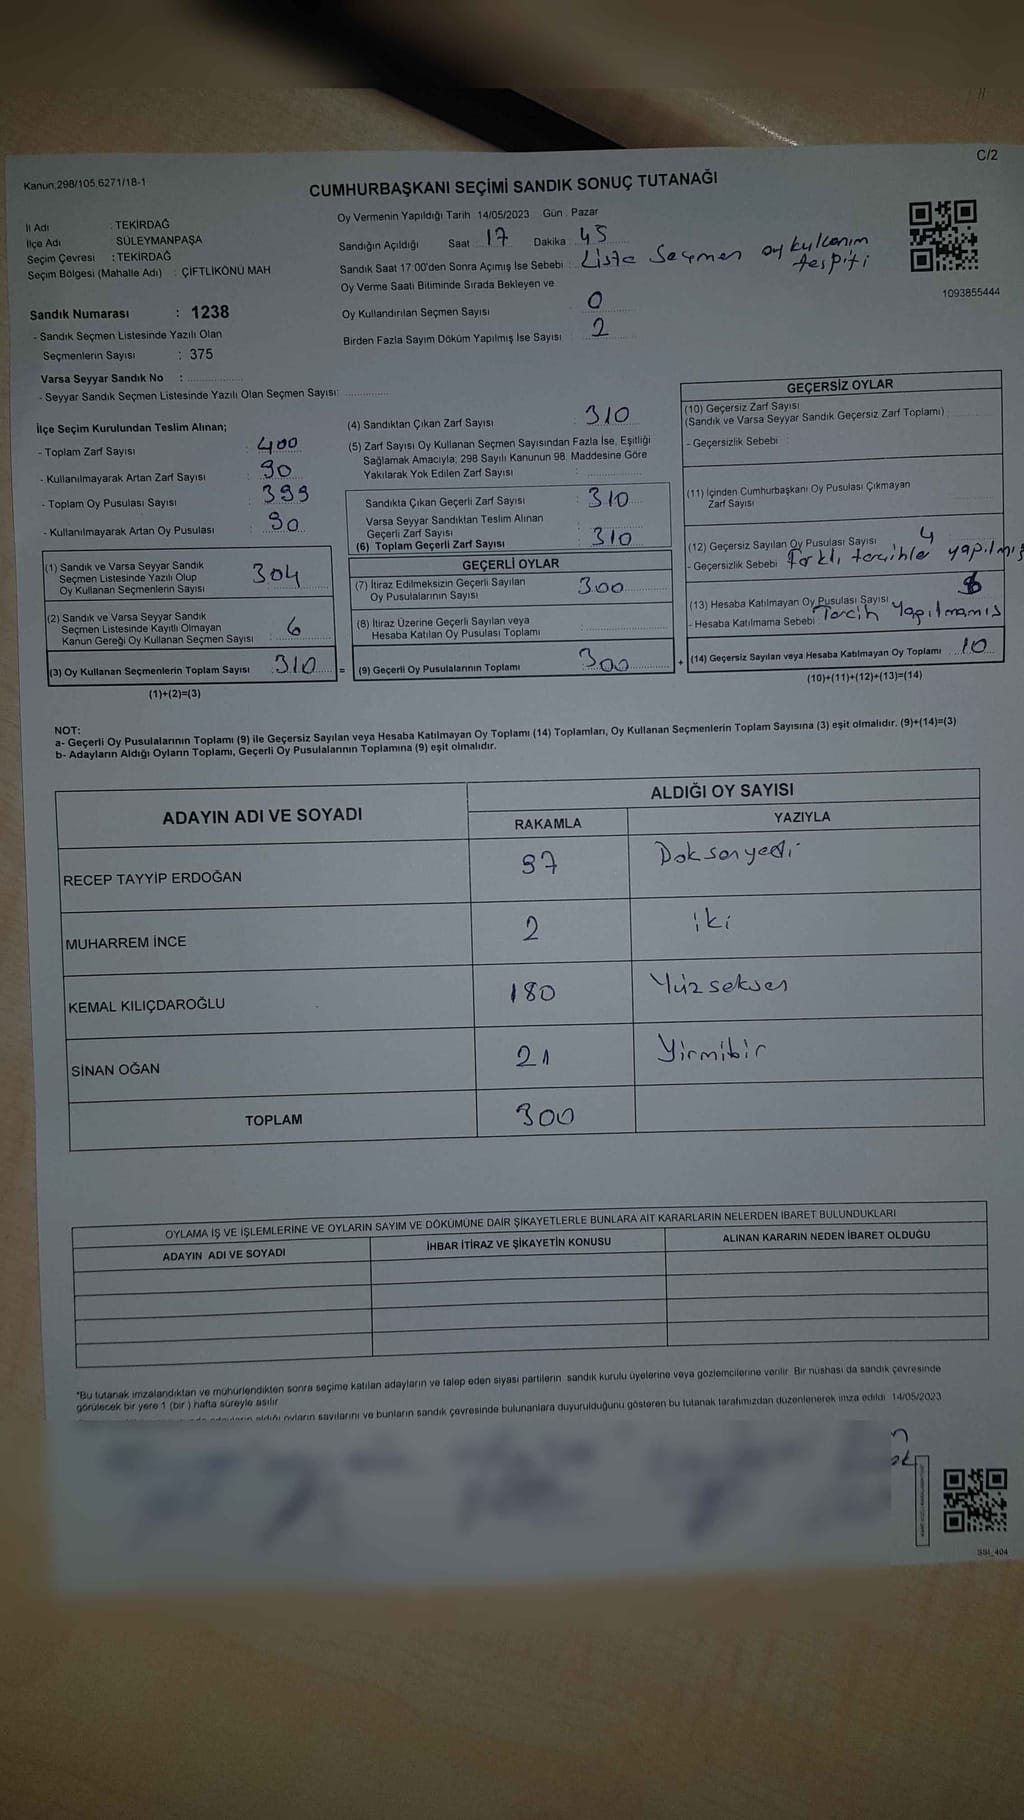 C/2
Kanun,298/105,6271/18-1
CUMHURBAŞKANI SEÇİMİ SANDIK SONUÇ TUTANAĞI
İl Adı : TEKİRDAĞ
İlçe Adı : SÜLEYMANPAŞA
Seçim Çevresi : TEKİRDAĞ
Seçim Bölgesi (Mahalle Adı) : ÇİFTLİKÖNÜ MAH
Sandık Numarası : 1238
- Sandık Seçmen Listesinde Yazılı Olan
Seçmenlerin Sayısı : 375
Varsa Seyyar Sandık No :
- Seyyar Sandık Seçmen Listesinde Yazılı Olan Seçmen Sayısı:
Oy Vermenin Yapıldığı Tarih 14/05/2023 Gün : Pazar
Sandığın Açıldığı Saat 17 Dakika 45
Sandık Saat 17:00'den Sonra Açımış İse Sebebi : Liste Seçmen oy kullanım tespiti
Oy Verme Saati Bitiminde Sırada Bekleyen ve
Oy Kullandırılan Seçmen Sayısı : 0
Birden Fazla Sayım Döküm Yapılmış İse Sayısı : 2
1093855444
İlçe Seçim Kurulundan Teslim Alınan;
- Toplam Zarf Sayısı : 400
- Kullanılmayarak Artan Zarf Sayısı : 90
- Toplam Oy Pusulası Sayısı : 399
- Kullanılmayarak Artan Oy Pusulası : 90
(1) Sandık ve Varsa Seyyar Sandık
Seçmen Listesinde Yazılı Olup
Oy Kullanan Seçmenlerin Sayısı 304
(2) Sandık ve Varsa Seyyar Sandık
Seçmen Listesinde Kayıtlı Olmayan
Kanun Gereği Oy Kullanan Seçmen Sayısı 6
(3) Oy Kullanan Seçmenlerin Toplam Sayısı : 310 =
(1)+(2)=(3)
(4) Sandıktan Çıkan Zarf Sayısı : 310
(5) Zarf Sayısı Oy Kullanan Seçmen Sayısından Fazla İse, Eşitliği
Sağlamak Amacıyla; 298 Sayılı Kanunun 98. Maddesine Göre
Yakılarak Yok Edilen Zarf Sayısı :
Sandıkta Çıkan Geçerli Zarf Sayısı : 310
Varsa Seyyar Sandıktan Teslim Alınan
Geçerli Zarf Sayısı
(6) Toplam Geçerli Zarf Sayısı : 310
GEÇERLİ OYLAR
(7) İtiraz Edilmeksizin Geçerli Sayılan
Oy Pusulalarının Sayısı : 300
(8) İtiraz Üzerine Geçerli Sayılan veya
Hesaba Katılan Oy Pusulası Toplamı :
(9) Geçerli Oy Pusulalarının Toplamı : 300 +
GEÇERSİZ OYLAR
(10) Geçersiz Zarf Sayısı
(Sandık ve Varsa Seyyar Sandık Geçersiz Zarf Toplamı)
- Geçersizlik Sebebi :
(11) İçinden Cumhurbaşkanı Oy Pusulası Çıkmayan
Zarf Sayısı
(12) Geçersiz Sayılan Oy Pusulası Sayısı : 4
- Geçersizlik Sebebi : Farklı tercihler yapılmış
(13) Hesaba Katılmayan Oy Pusulası Sayısı 6
- Hesaba Katılmama Sebebi : Tercih yapılmamış
(14) Geçersiz Sayılan veya Hesaba Katılmayan Oy Toplamı 10
(10)+(11)+(12)+(13)=(14)
NOT:
a- Geçerli Oy Pusulalarının Toplamı (9) ile Geçersiz Sayılan veya Hesaba Katılmayan Oy Toplamı (14) Toplamları, Oy Kullanan Seçmenlerin Toplam Sayısına (3) eşit olmalıdır. (9)+(14)=(3)
b- Adayların Aldığı Oyların Toplamı, Geçerli Oy Pusulalarının Toplamına (9) eşit olmalıdır.
ADAYIN ADI VE SOYADI ALDIĞI OY SAYISI
RAKAMLA YAZIYLA
RECEP TAYYİP ERDOĞAN 97 Doksanyedi
MUHARREM İNCE 2 iki
KEMAL KILIÇDAROĞLU 180 Yüzseksen
SİNAN OĞAN 21 Yirmibir
TOPLAM 300
OYLAMA İŞ VE İŞLEMLERİNE VE OYLARIN SAYIM VE DÖKÜMÜNE DAİR ŞİKAYETLERLE BUNLARA AİT KARARLARIN NELERDEN İBARET BULUNDUKLARI
ADAYIN ADI VE SOYADI İHBAR İTİRAZ VE ŞİKAYETİN KONUSU ALINAN KARARIN NEDEN İBARET OLDUĞU
*Bu tutanak imzalandıktan ve mühürlendikten sonra seçime katılan adayların ve talep eden siyasi partilerin sandık kurulu üyelerine veya gözlemcilerine verilir. Bir nüshası da sandık çevresinde
görülecek bir yere 1 (bir ) hafta süreyle asılır
aldığı oyların sayılarını ve bunların sandık çevresinde bulunanlara duyurulduğunu gösteren bu tutanak tarafımızdan düzenlenerek imza edildi. 14/05/2023
SSI_404